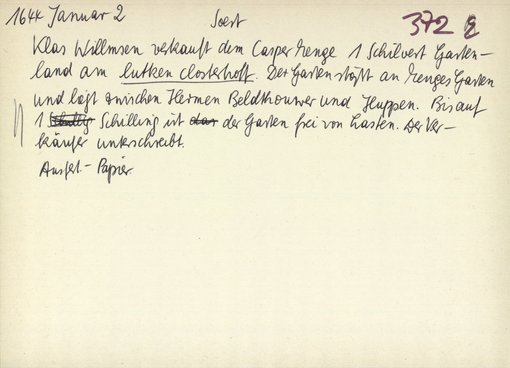 1644 Januar 2 Soest 372
Klas Willmsen verkauft dem Casper Menge 1 Schilvert Garten-
land am lutken Closterhoff. Der Garten stößt an Menges Garten
und liegt zwischen Hermen Beldthouwer und Huppen. Bis auf
1 Schilling ist der Garten frei von Lasten. Der Ver-
käufer unterschreibt.
Ausfert. - Papier.